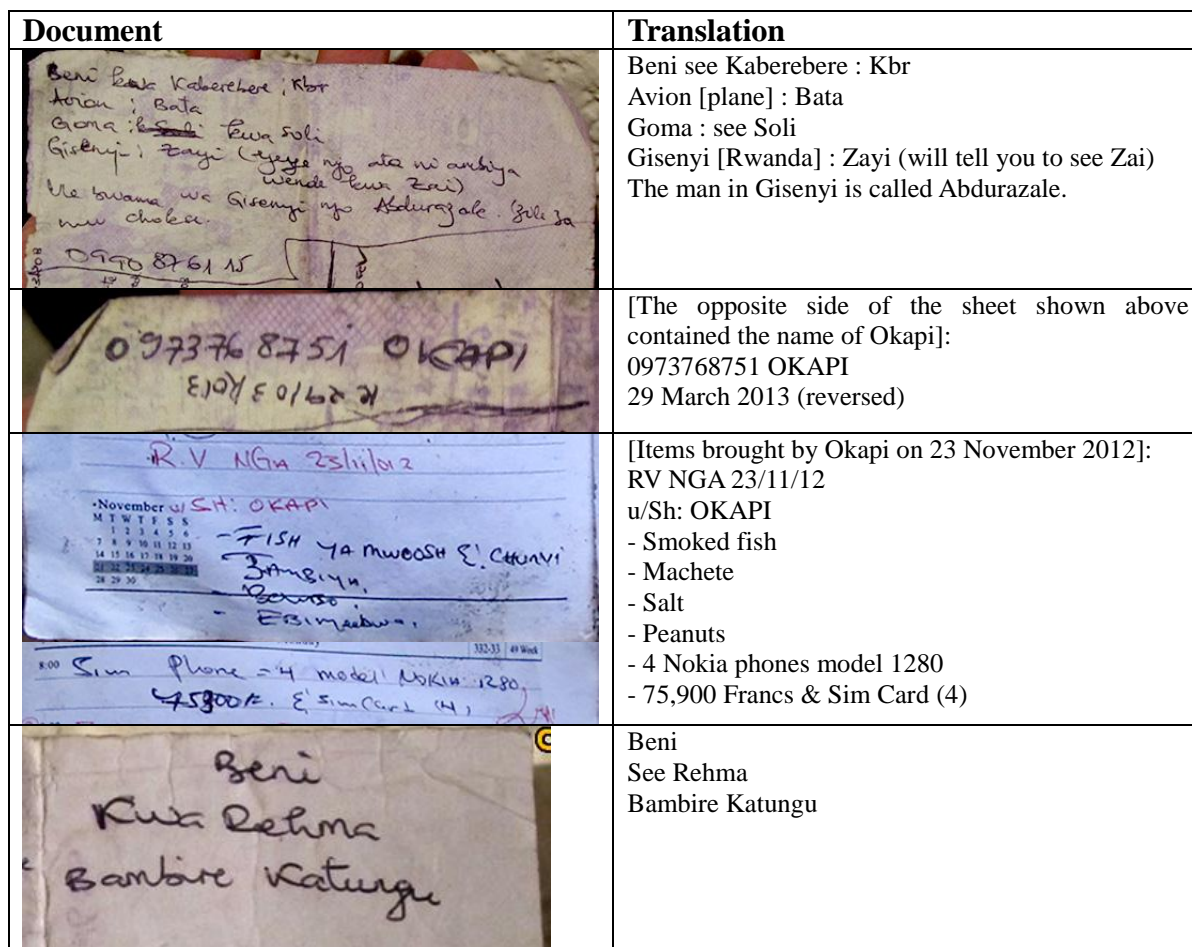 Document
Translation
Beni kwa Kaberebere ; Kbr
Avion ; Bata
Goma : kwa Soli
Gisenyi ; Zayi (yeye njo ata ni ambiya
wende kwa Zai)
bwama wa Gisenyi njo Abdurazale.
choka.
0990 8761 15
Beni see Kaberebere : Kbr
Avion [plane] : Bata
Goma : see Soli
Gisenyi [Rwanda] : Zayi (will tell you to see Zai)
The man in Gisenyi is called Abdurazale.
0973768751 OKAPI
[The opposite side of the sheet shown above
contained the name of Okapi]:
0973768751 OKAPI
29 March 2013 (reversed)
R.V NGA 23/11/012
November u/SH: OKAPI
M T W T F S S
1 2 3 4 5 6
7 8 9 10 11 12 13
14 15 16 17 18 19 20
21 22 23 24 25 26 27
28 29 30
- FISH YA MWOOSH & CHUNVI
332-33 49 Week
8:00 Sim Phone = 4 model NOKIA 1280,
& Sim Card (4)
[Items brought by Okapi on 23 November 2012]:
RV NGA 23/11/12
u/Sh: OKAPI
- Smoked fish
- Machete
- Salt
- Peanuts
- 4 Nokia phones model 1280
- 75,900 Francs & Sim Card (4)
Beni
Kwa Rehma
Bambire Katungu
Beni
See Rehma
Bambire Katungu